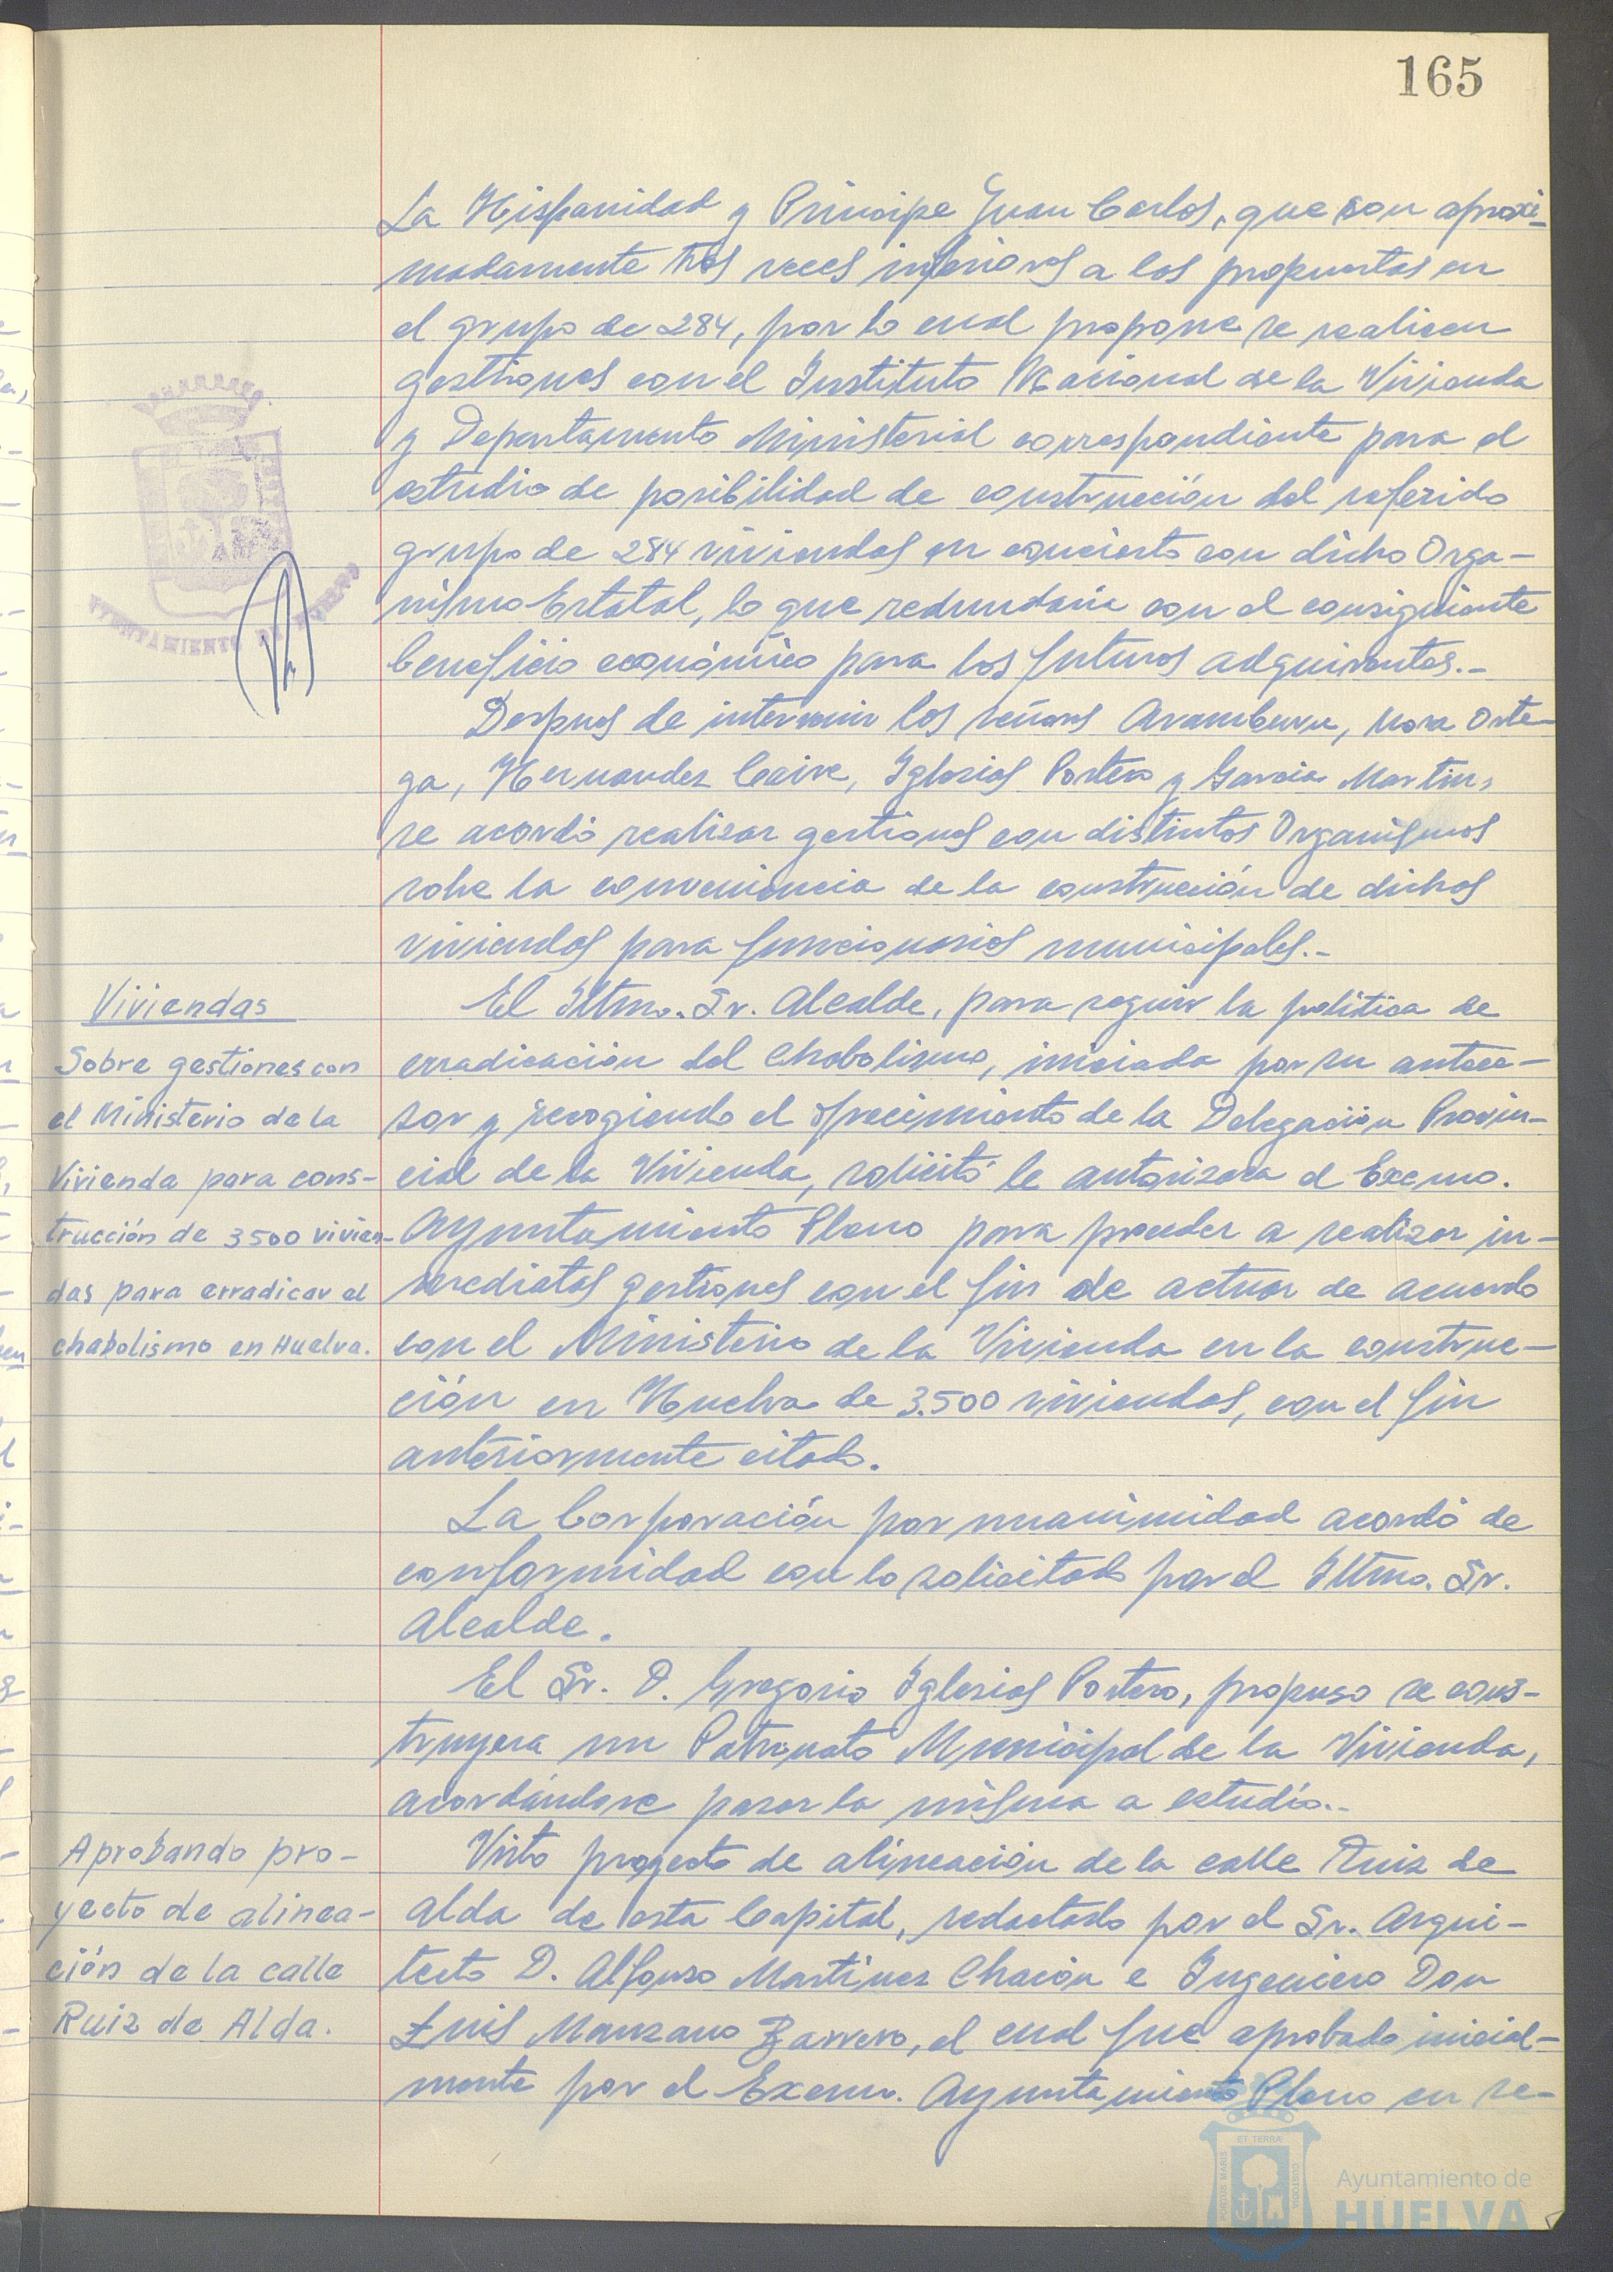 165
La Hispanidad y Principe Juan Carlos, que son aproxi-
madamente tres veces inferiores a los propuestos en
el grupo de 284, por lo cual propone se realicen
gestiones con el Instituto Nacional de la Vivienda
y Departamento Ministerial correspondiente para el
estudio de posibilidad de construcción del referido
grupo de 284 viviendas en concierto con dicho Orga-
nismo Estatal, lo que redundaria con el consiguiente
beneficio económico para los futuros adquirentes.-
AYUNTAMIENTO DE HUELVA
Despues de intervenir los señores Aramburu, Mora Orte-
ga, Hernandez Caire, Iglesias Portero y Garcia Martin,
se acordó realizar gestiones con distintos Organismos
sobre la conveniencia de la construcción de dichas
viviendas para funcionarios municipales.-
Viviendas
Sobre gestiones con
el Ministerio de la
Vivienda para cons-
trucción de 3500 vivien-
das para erradicar el
chabolismo en Huelva.
El Iltmo. Sr. Alcalde, para seguir la politica de
erradicación del Chabolismo, iniciada por su antece-
sor y recogiendo el ofrecimiento de la Delegación Provin-
cial de la Vivienda, solicitó le autorizara el Excmo.
Ayuntamiento Pleno para proceder a realizar in-
mediatas gestiones con el fin de actuar de acuerdo
con el Ministerio de la Vivienda en la construc-
ción en Huelva de 3.500 viviendas, con el fin
anteriormente citado.
La Corporación por unanimidad acordó de
conformidad con lo solicitado por el Iltmo. Sr.
Alcalde.
El Sr. D. Gregorio Iglesias Portero, propuso se cons-
truyera un Patronato Municipal de la Vivienda,
acordándose pasar la misma a estudio.-
Aprobando pro-
yecto de alinea-
ción de la calle
Ruiz de Alda.
Visto proyecto de alineación de la calle Ruiz de
Alda de esta Capital, redactado por el Sr. Arqui-
tecto D. Alfonso Martinez Chacón e Ingeniero Don
Luis Manzano Barrero, el cual fue aprobado inicial-
mente por el Excmo. Ayuntamiento Pleno en se-
PORTUS MARIS ET TERRAE CUSTODIA
Ayuntamiento de
HUELVA